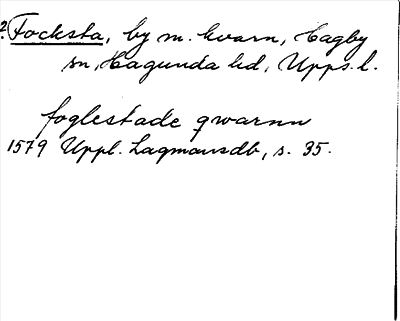 2. Focksta, by m. kvarn, Hagby
sn, Hagunda hd, Upps. l.
foglestade qwarnn
1579 Uppl. Lagmansdb, s. 35.